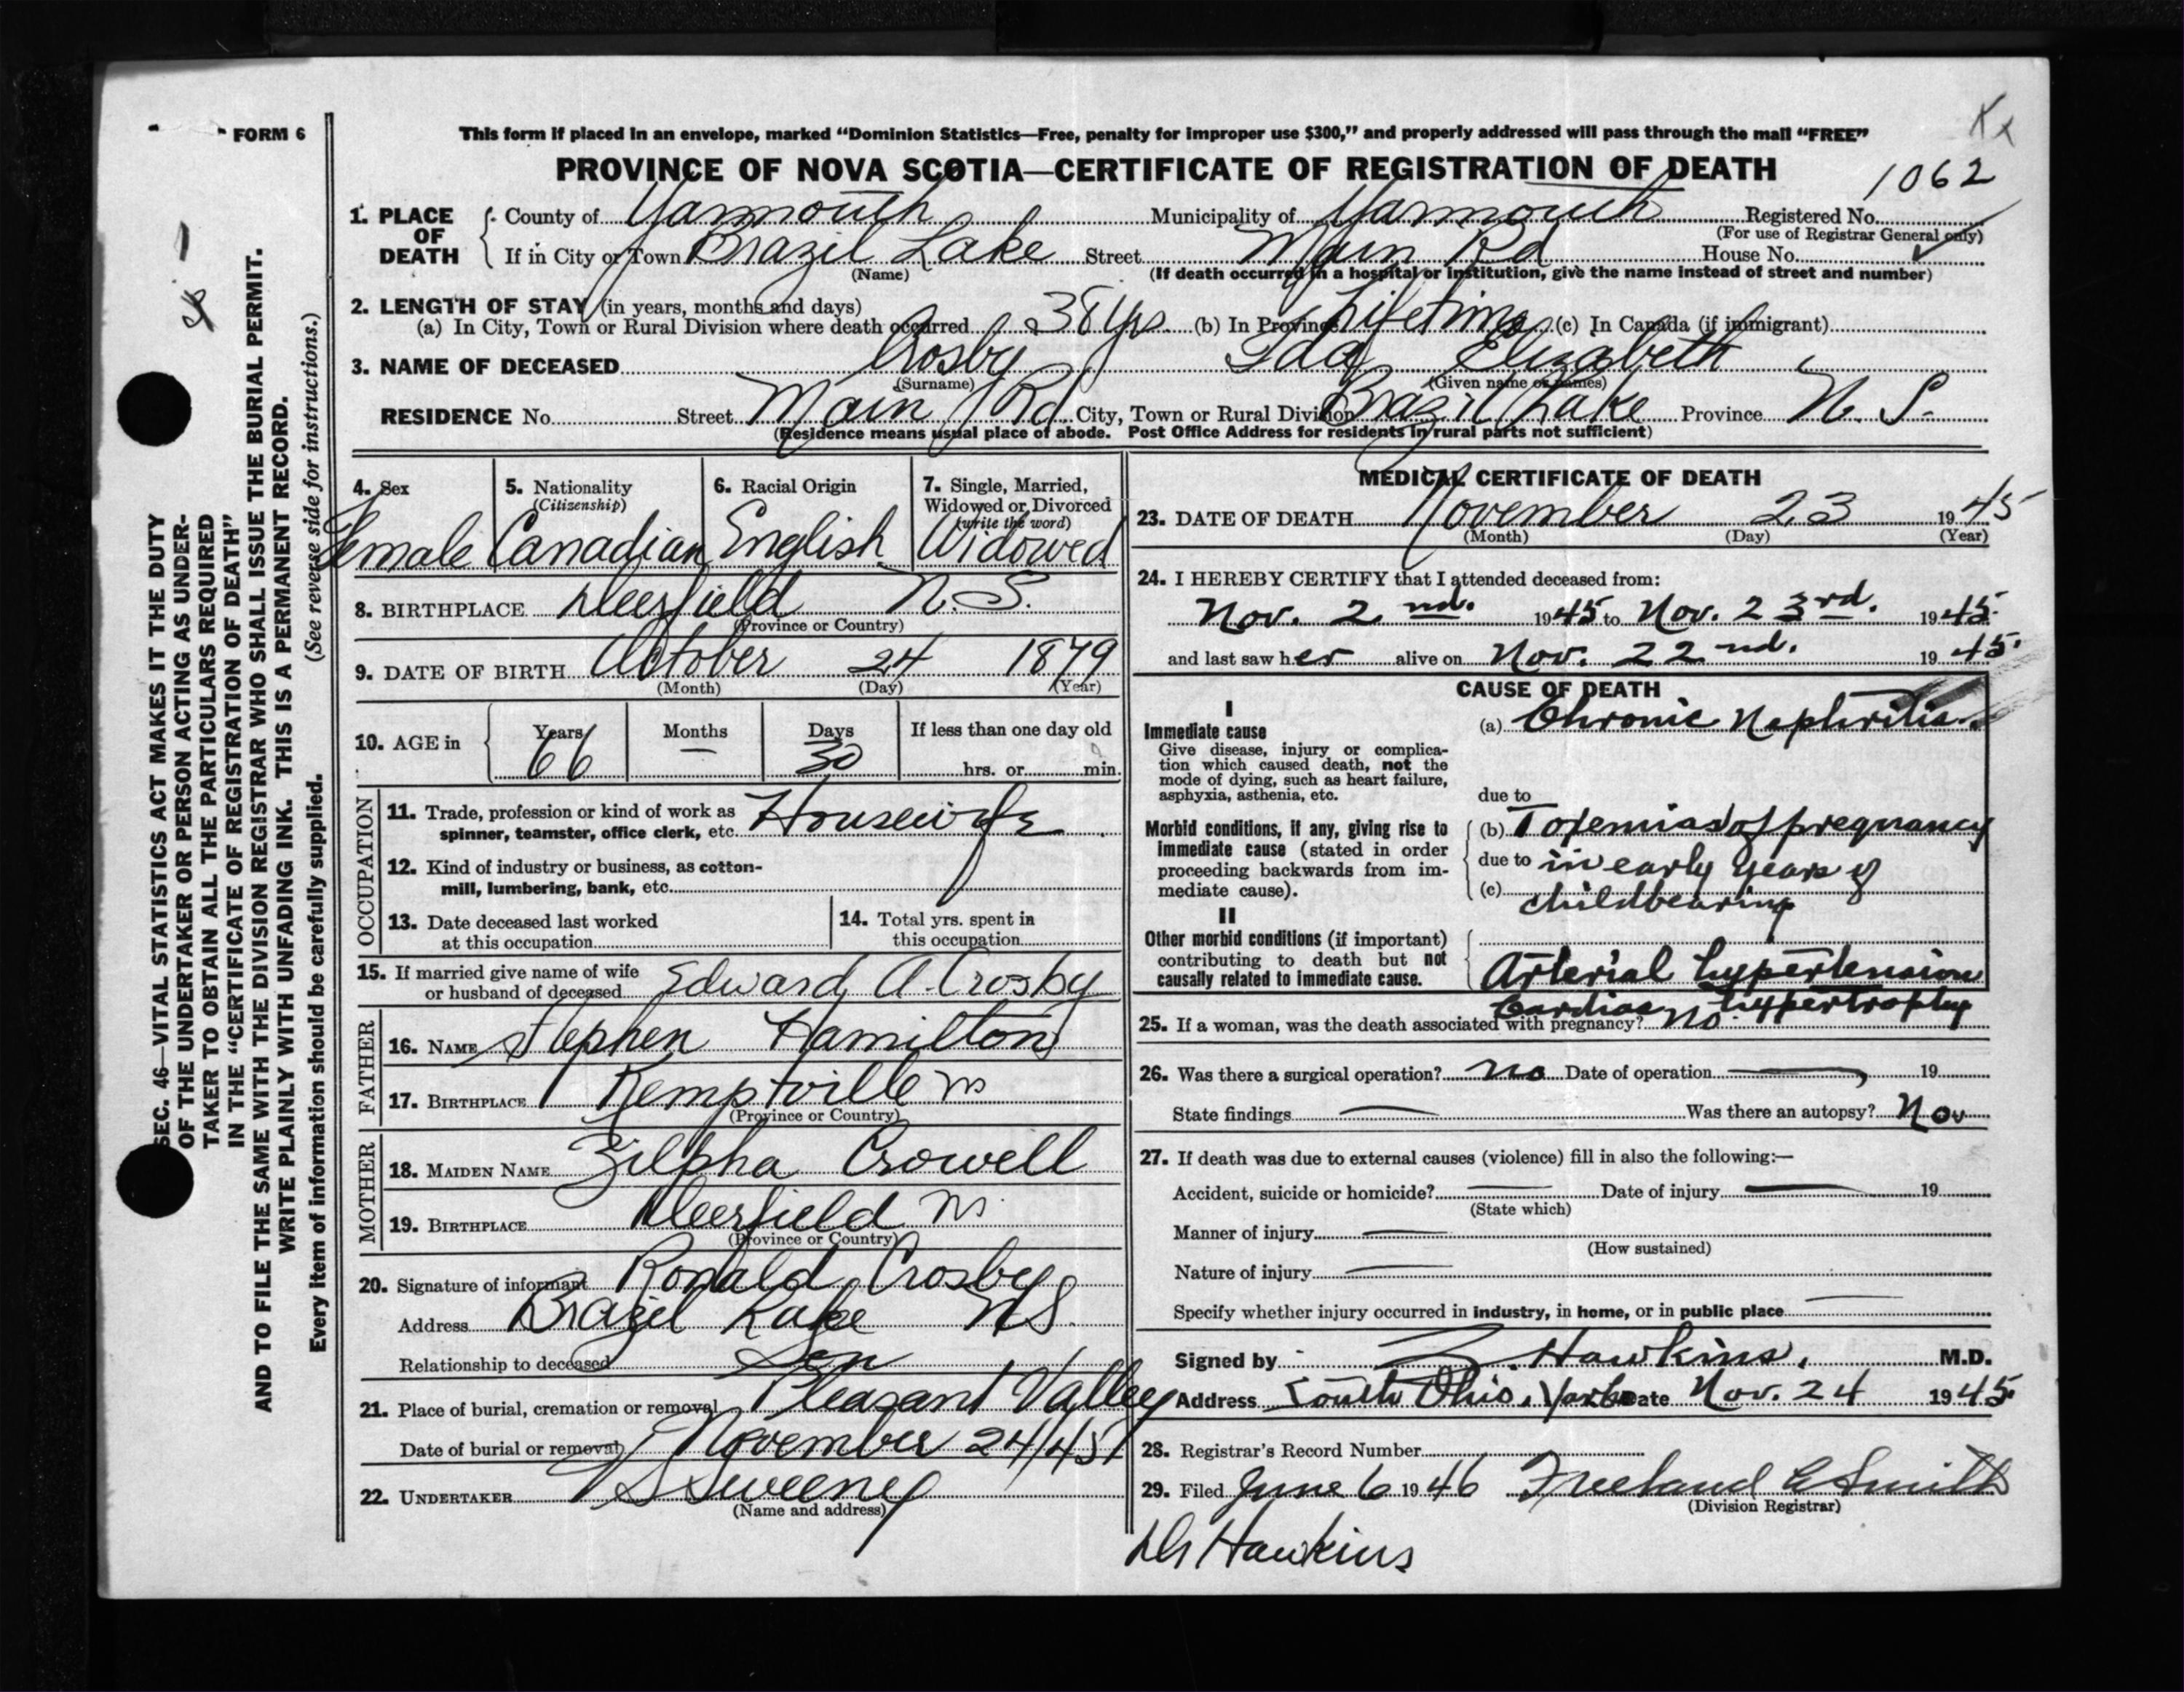 FORM 6
This form if placed in an envelope, marked “Dominion Statistics—Free, penalty for improper use $300,” and properly addressed will pass through the mail “FREE”
PROVINCE OF NOVA SCOTIA—CERTIFICATE OF REGISTRATION OF DEATH
1062
1. PLACE OF DEATH
County of Yarmouth Municipality of Yarmouth Registered No.
(For use of Registrar General only)
If in City or Town Brazil Lake Street Main Rd House No.
(Name) (If death occurred in a hospital or institution, give the name instead of street and number)
2. LENGTH OF STAY (in years, months and days)
(a) In City, Town or Rural Division where death occurred 38 yrs. (b) In Province Lifetime (c) In Canada (if immigrant)
3. NAME OF DECEASED Crosby Ida Elizabeth
(Surname) (Given name or names)
RESIDENCE No. Street Main Rd City, Town or Rural Division Brazil Lake Province N. S.
(Residence means usual place of abode. Post Office Address for residents in rural parts not sufficient)
4. Sex
Female
5. Nationality
(Citizenship)
Canadian
6. Racial Origin
English
7. Single, Married,
Widowed or Divorced
(write the word)
Widowed
8. BIRTHPLACE Deerfield N.S.
(Province or Country)
9. DATE OF BIRTH October 24 1879
(Month) (Day) (Year)
10. AGE in
Years Months Days If less than one day old
66 — 30 hrs. or min.
OCCUPATION
11. Trade, profession or kind of work as
spinner, teamster, office clerk, etc. Housewife
12. Kind of industry or business, as cotton-
mill, lumbering, bank, etc.
13. Date deceased last worked
at this occupation
14. Total yrs. spent in
this occupation
15. If married give name of wife
or husband of deceased Edward A. Crosby
FATHER
16. NAME Stephen Hamilton
17. BIRTHPLACE Kemptville ns
(Province or Country)
MOTHER
18. MAIDEN NAME Zilpha Crowell
19. BIRTHPLACE Deerfield ns
(Province or Country)
20. Signature of informant Ronald Crosby
Address Brazil Lake N S.
Relationship to deceased Son
21. Place of burial, cremation or removal Pleasant Valley
Date of burial or removal November 24/45
22. UNDERTAKER V S Sweeney
(Name and address)
MEDICAL CERTIFICATE OF DEATH
23. DATE OF DEATH November 23 1945
(Month) (Day) (Year)
24. I HEREBY CERTIFY that I attended deceased from:
Nov. 2 nd. 1945 to Nov. 23rd. 1945
and last saw her alive on Nov. 22 nd. 1945.
CAUSE OF DEATH
I
Immediate cause
Give disease, injury or complica-
tion which caused death, not the
mode of dying, such as heart failure,
asphyxia, asthenia, etc.
(a) Chronic Nephritis
due to
Morbid conditions, if any, giving rise to
immediate cause (stated in order
proceeding backwards from im-
mediate cause).
(b) Toxemias of pregnancy
due to in early years of
(c) childbearing
II
Other morbid conditions (if important)
contributing to death but not
causally related to immediate cause.
Arterial hypertension
Cardiac hypertrophy
25. If a woman, was the death associated with pregnancy? no
26. Was there a surgical operation? no Date of operation — 19
State findings — Was there an autopsy? No
27. If death was due to external causes (violence) fill in also the following:—
Accident, suicide or homicide? — Date of injury — 19
(State which)
Manner of injury —
(How sustained)
Nature of injury —
Specify whether injury occurred in industry, in home, or in public place —
Signed by Z. Hawkins, M.D.
Address South Ohio, Date Nov. 24 1945
28. Registrar's Record Number
29. Filed June 6 1946 Freeland C Smith
(Division Registrar)
Dr Hawkins
SEC. 46—VITAL STATISTICS ACT MAKES IT THE DUTY
OF THE UNDERTAKER OR PERSON ACTING AS UNDER-
TAKER TO OBTAIN ALL THE PARTICULARS REQUIRED
IN THE “CERTIFICATE OF REGISTRATION OF DEATH”
AND TO FILE THE SAME WITH THE DIVISION REGISTRAR WHO SHALL ISSUE THE BURIAL PERMIT.
WRITE PLAINLY WITH UNFADING INK. THIS IS A PERMANENT RECORD.
Every item of information should be carefully supplied. (See reverse side for instructions.)